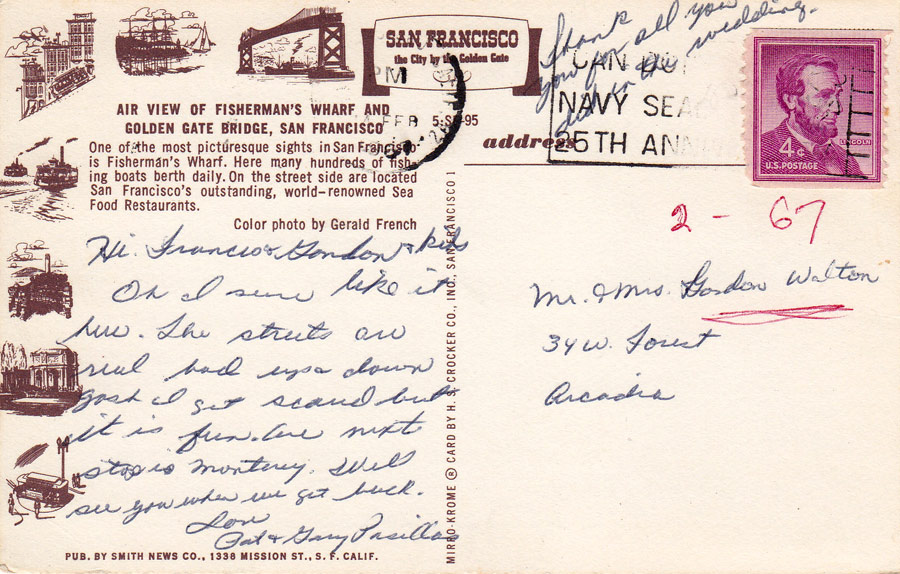 SAN FRANCISCO
the City by the Golden Gate
AIR VIEW OF FISHERMAN'S WHARF AND
GOLDEN GATE BRIDGE, SAN FRANCISCO
5-SF-95
One of the most picturesque sights in San Francisco
is Fisherman's Wharf. Here many hundreds of fish-
ing boats berth daily. On the street side are located
San Francisco's outstanding, world-renowned Sea
Food Restaurants.
Color photo by Gerald French
Hi. Francis & Gordon & kids
Oh I sure like it
here. The streets are
real bad ups a down
gosh I get scared but
it is fun. Are next
stop is Monterey. Will
see you when we get back.
Love
Pat & Gary Pasillas
PUB. BY SMITH NEWS CO., 1338 MISSION ST., S. F. CALIF.
MIRRO-KROME ® CARD BY H. S. CROCKER CO., INC., SAN FRANCISCO 1
Thank
you for all you
did in the wedding.
PM
FEB
NAVY SEA
25TH ANN
address
4¢
LINCOLN
U.S. POSTAGE
2 - 67
Mr. & Mrs. Gordon Walton
34 W. Forest
Arcadia